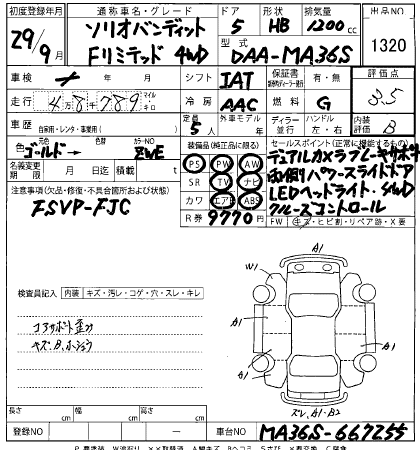 初度登録年月 通称車名・グレード ドア 形状 排気量 出品NO
29年9月 ソリオバンディット 5 HB 1200cc 1320
Fリミテッド 4WD 型式 DAA-MA36S
車検 年 月 シフト IAT 保証書 有・無 評価点
走行 4万8千789 マイル キロ 冷房 AAC 燃料 G 3.5
車歴 自家用・レンタ・事業用( ) 定員 5人 外車モデル 年 ディーラー 並行 ハンドル 左・右 内装 B
色 元色 ゴールド→ 色替 カラーNO ZWE 装備品(純正品に限る) セールスポイント(正常に機能するもの)
PS PW AW デュアルカメラブレーキサポート
名義変更期限 月 日迄 積載 t SR TV ナビ 両側パワースライドドア
注意事項(欠品・修復・不具合箇所および状態) カワ エアB ABS LEDヘッドライト・4WD
FSVP-FJC R券 9770円 クルーズコントロール
FW (キズ・ヒビ割・リペア跡・X要)
検査員記入 内装 キズ・汚レ・コゲ・穴・スレ・キレ
コアサポート歪み
A1
W1 A1
A1 A1
スレ、A1・B2
長さ cm 幅 cm 高さ cm
登録NO ー 車台NO MA36S-667255